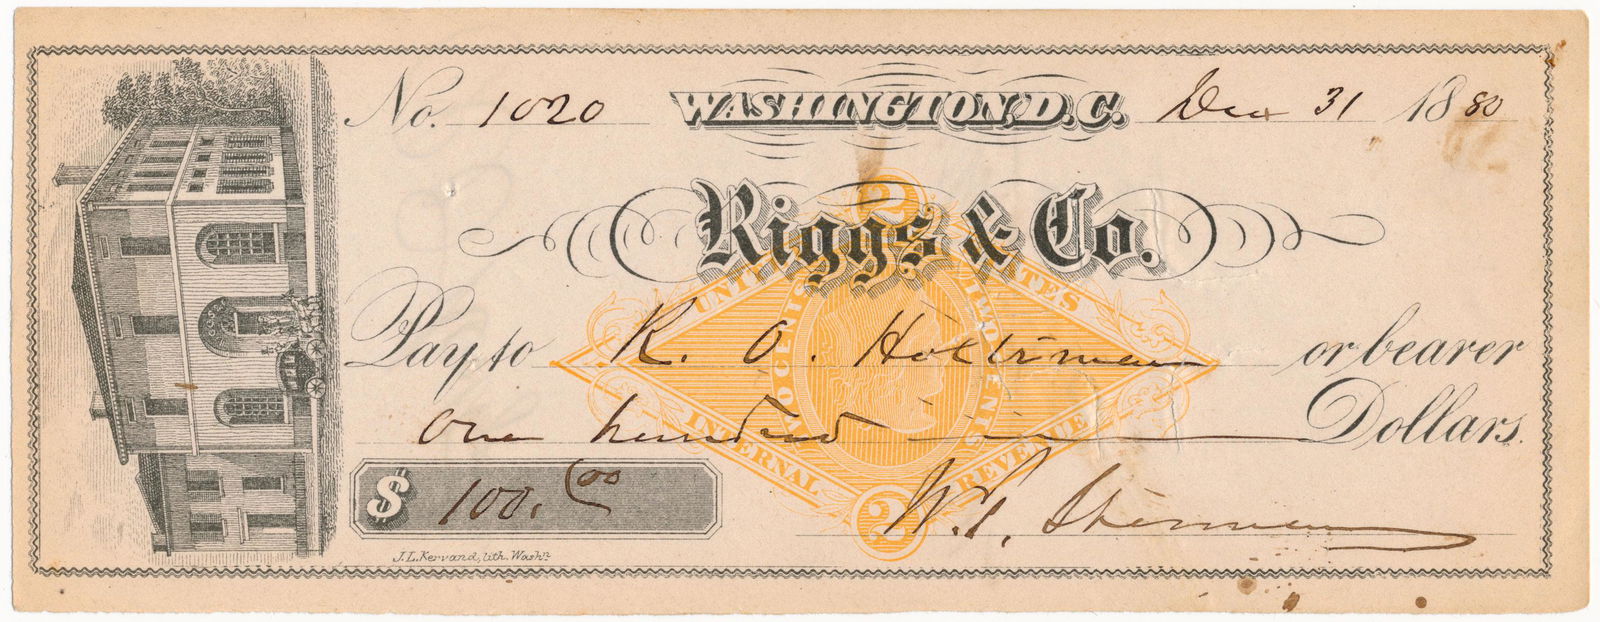 No. 1020 WASHINGTON, D.C. Dec 31 1880
Riggs & Co.
UNITED STATES
TWO CENTS
2
Pay to R. O. Holtzman or bearer
One hundred Dollars.
INTERNAL REVENUE
$ 100.00
2
W. T. Sherman
J. L. Kervand, lith. Washn.